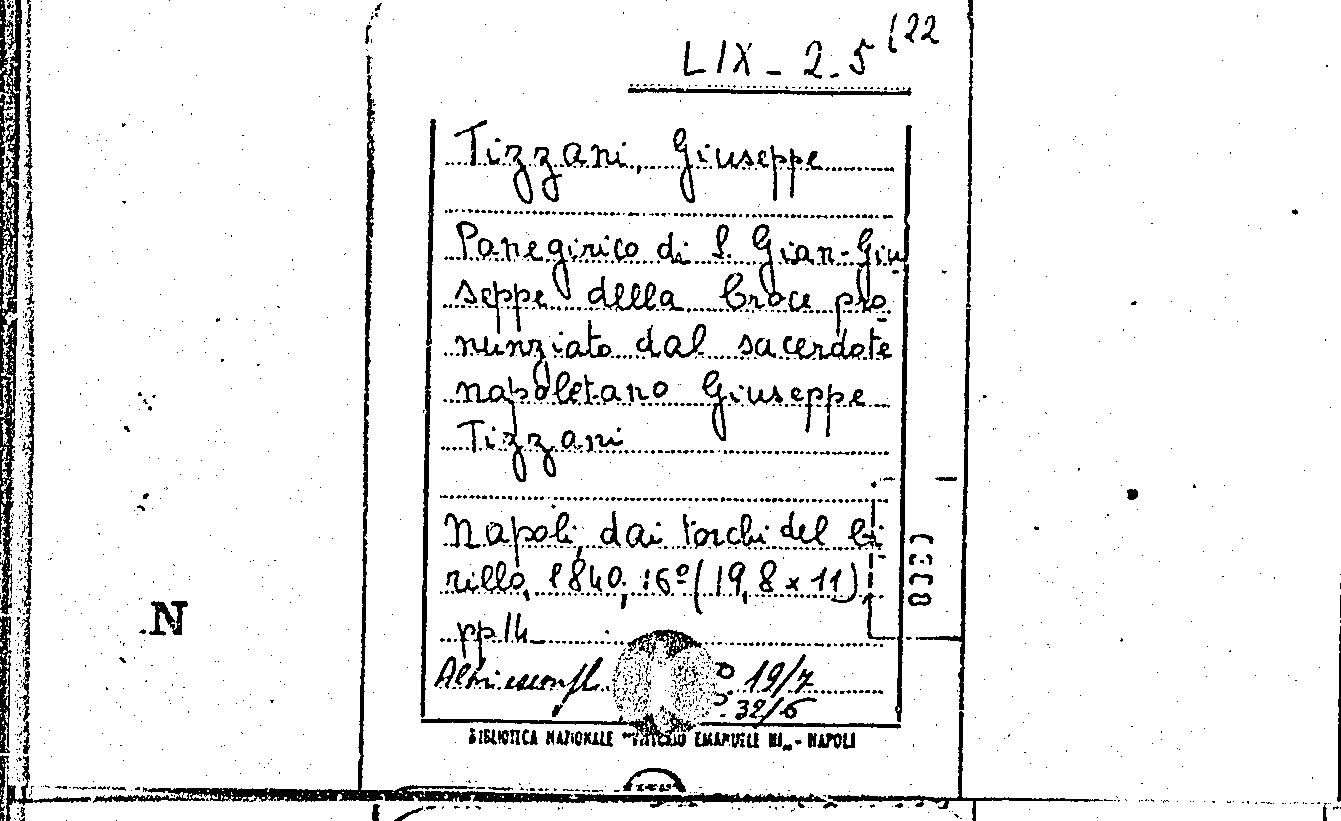 LIX - 2. 5 (22
Tizzani, Giuseppe
Panegirico di S. Gian-Giu
seppe della Croce pro
nunziato dal sacerdote
napoletano Giuseppe
Tizzani
Napoli, dai torchi del Ci
rillo, 1840, 16º (19,8 x 11)
pp 14
Altri esempl. 19/7
32/6
N
BIBLIOTECA NAZIONALE "VITTORIO EMANUELE III" - NAPOLI